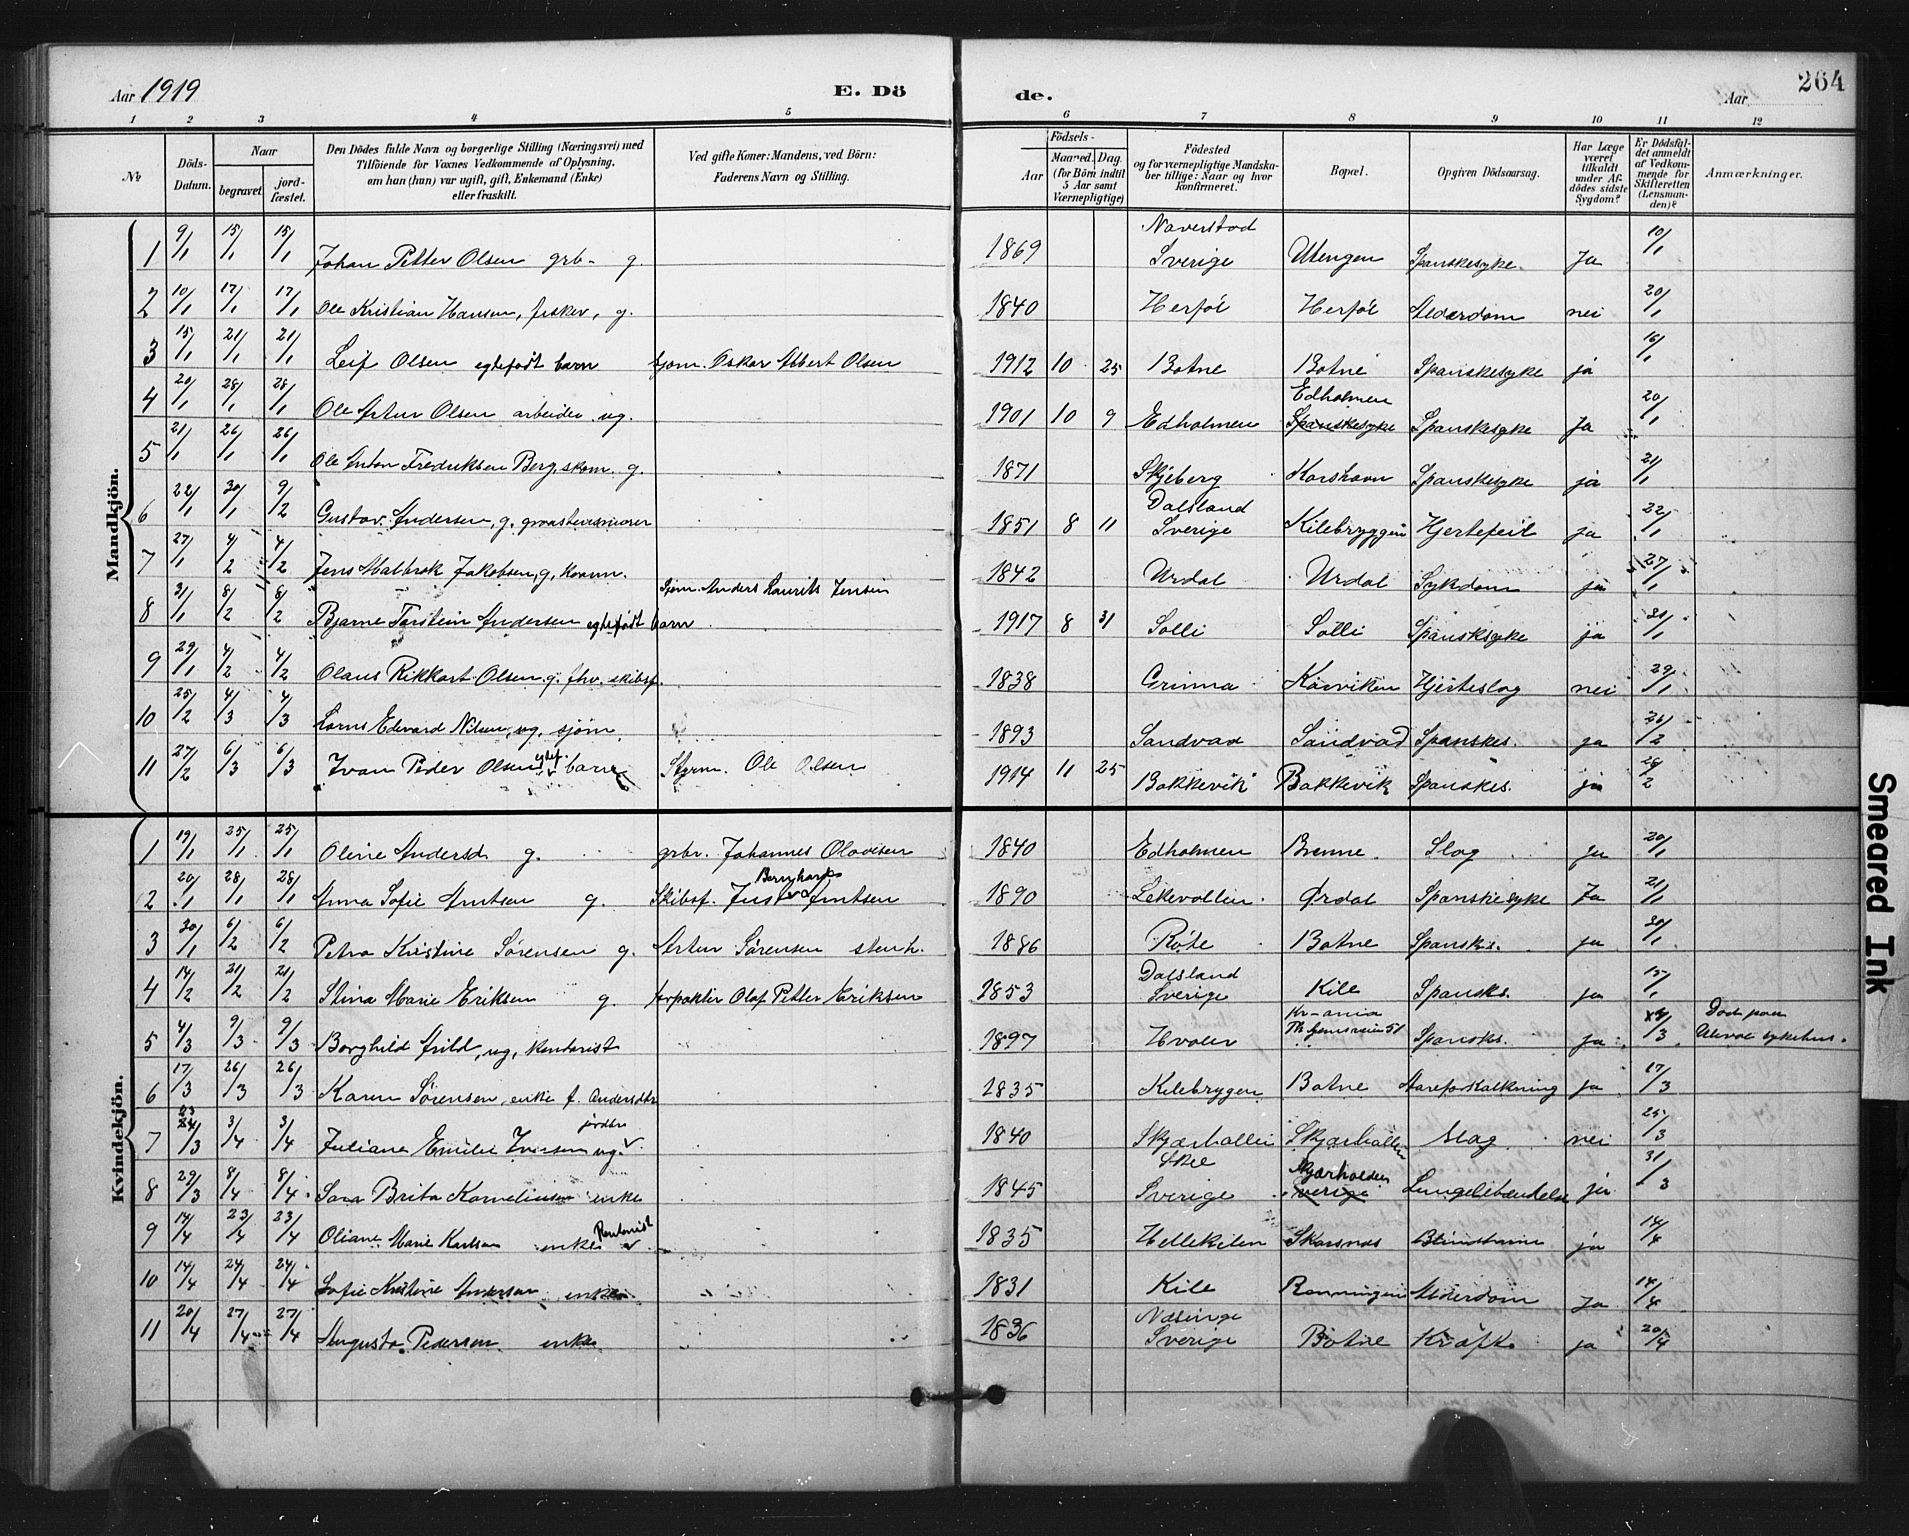 Aar 1919
E. Döde.
Aar
264
1 2 3 4 5 6 7 8 9 10 11 12
Nr
Döds-Datum.
Naar
begravet.
jord-fæstet.
Den Dödes fulde Navn og borgerlige Stilling (Næringsvei) med
Tilföiende for Voxnes Vedkommende af Oplysning,
om han (hun) var ugift, gift, Enkemand (Enke)
eller fraskilt.
Ved gifte Koner: Mandens, ved Börn:
Faderens Navn og Stilling.
Födsels-
Aar
Maaned. Dag.
(for Börn indtil
5 Aar samt
Værnepligtige)
Födested
og for værnepligtige Mandska-
ber tillige: Naar og hvor
konfirmeret.
Bopæl.
Opgiven Dödsaarsag.
Har Læge
været
tilkaldt
under Af-
dödes sidste
Sygdom?
Er Dödsfal-
det anmeldt
af Vedkom-
mende for
Skifteretten
(Lensman-
den)?
Anmærkninger.
Mandkjön.
1 9/1 15/1 15/1 Johan Petter Olsen grb- g. 1869 Naverstad Sverige Utengen Spanskesyke. Ja 10/1
2 10/1 17/1 17/1 Ole Kristian Hansen, fisker, g. 1840 Herföl Herföl Alderdom nei 20/1
3 15/1 21/1 21/1 Leif Olsen egtefødt barn sjom. Oskar Albert Olsen 1912 10 25 Botne Botne Spanskesyke ja 16/1
4 20/1 28/1 28/1 Ole Artur Olsen arbeider ug. 1901 10 9 Edholmen Edholmen Spanskesyke Spanskesyke Ja 20/1
5 21/1 26/1 26/1 Ole Anton Fredriksen Berg, skom. g. 1871 Skjeberg Korshavn Spanskesyke ja 21/1
6 22/1 30/1 9/2 Gustav Andersen, g. graastensmurer 1851 8 11 Dalsland Sverige Kilebryggen Hjertefeil ja 22/1
7 27/1 4/2 4/2 Jens Malbrok Jakobsen, g, 1842 Urdal Urdal Sykdom ja 27/1
8 31/1 8/2 8/2 Bjarne Torstein Andersen egtefødt barn Sjøm. Anders Laurits Jensen 1917 8 31 Solli Solli Spansksyke ja 31/1
9 29/1 4/2 4/2 Olaus Rikkart Olsen g. fhv. skibsf. 1838 Grinna Korviken Hjerteslag nei 29/1
10 25/2 4/3 4/3 Edvard Nilsen, ug, sjøm. 1893 Sandvad Sandvad Spanskes. ja 26/2
11 27/2 6/3 6/3 Ivan Peder Olsen egtef. barn Styrm. Ole Olsen 1914 11 25 Bakkevik Bakkevik Spanskes. ja 28/2
Kvindekjön.
1 19/1 25/1 25/1 Oline Andersd. g. grbr. Johannes Olavesen 1840 Edholmen Brenne. Slag ja 20/1
2 20/1 28/1 28/1 Anna Sofie Arntsen g. Skibsf. Just Bernhard Arntsen 1890 Lekevollen Ørdal Spanskesyke Ja 21/1
3 30/1 6/2 6/2 Petra Kristine Sørensen g. Artur Sørensen stenh. 1886 Røte Botne Spansks. ja 30/1
4 14/2 21/2 21/2 Stina Marie Eriksen g forpakter Olaf Petter Eriksen 1853 Dalsland Sverige Kile Spansks. ja 15/1
5 4/3 9/3 9/3 Borghild Arild, ug, kontorist 1897 Hvaler Kr-ania Spansks. ja Død paa Ulleval sykehus.
6 17/3 26/3 26/3 Karen Sørensen, enke f. Andersdtr 1835 Kilebryggen Botne Aareforkalkning ja 17/3
7 23/3 3/4 3/4 Juliane Emilie Iversen ug. jordbr 1840 Skjærhallen Skjærhallen Slag nei 25/3
8 29/3 8/4 8/4 Sara Brita Kornelius enke 1845 Sverige Skjærhalden Sverige ja 31/3
9 14/4 23/4 23/4 Oliane Marie Karlsen enke 1835 Hellekilen Skarsnes ja 14/4
10 14/4 24/4 24/4 Sofie Kristine Andersen enke 1831 Kile Rønningen Alderdom Ja 14/4
11 20/4 27/4 27/4 Augusta Pedersen enke 1836 Næsinge Sverige Botne Kræft. ja 20/4
Smeared Ink